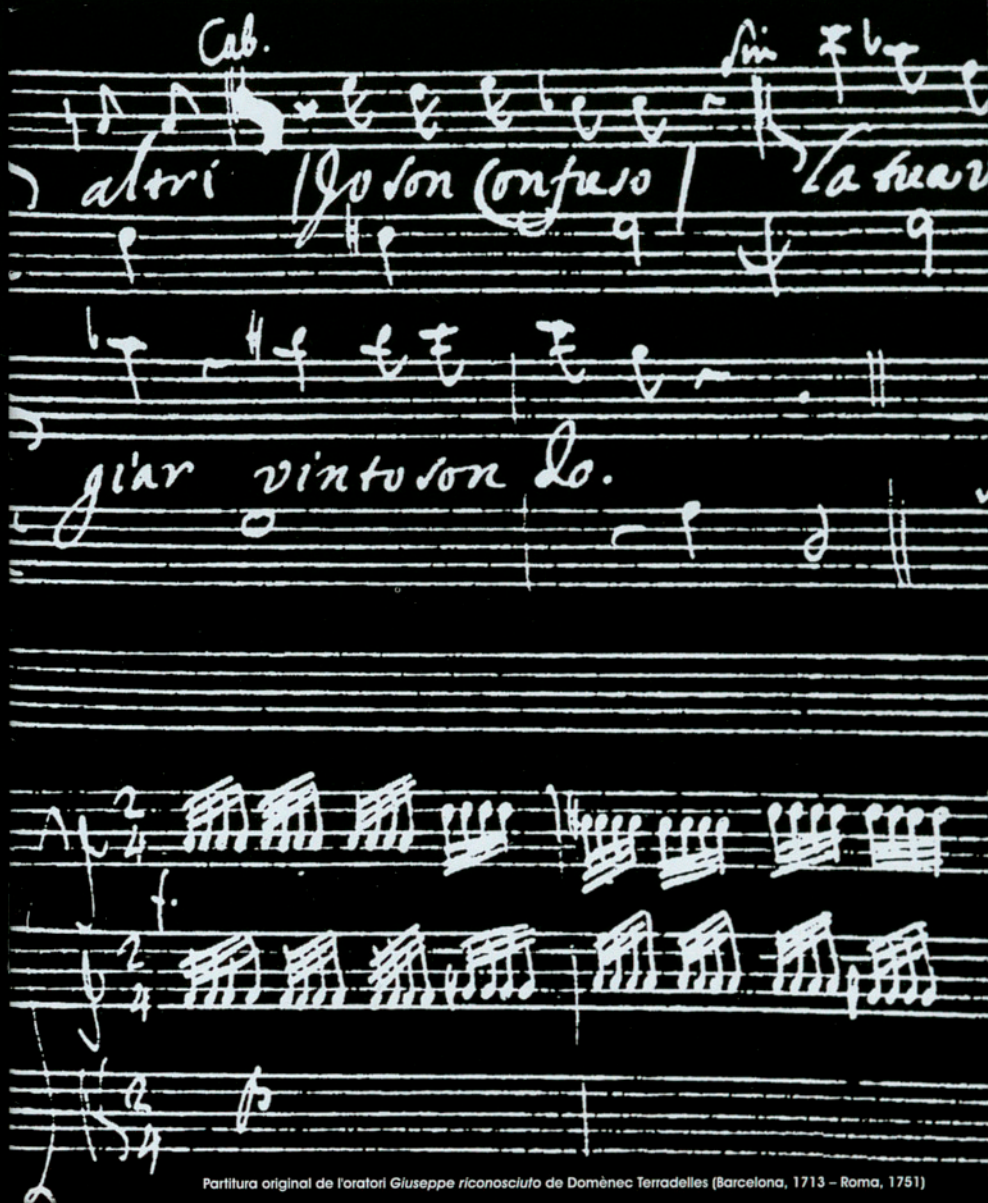 Cab. Sim
altri Io son Confuso la tua
giar vinto son Io.
2
4
f.
2
4
2
4
Partitura original de l'oratori Giuseppe riconosciuto de Domènec Terradelles (Barcelona, 1713 – Roma, 1751)